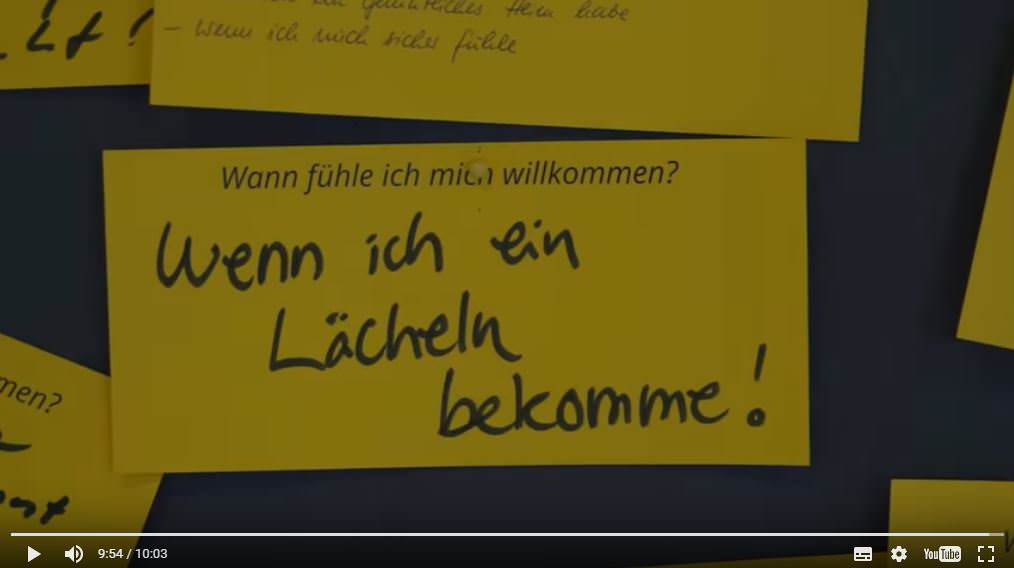 Heim habe
– Wenn ich mich sicher fühle
Wann fühle ich mich willkommen?
Wenn ich ein
Lächeln
bekomme!
men?
9:54 / 10:03
YouTube